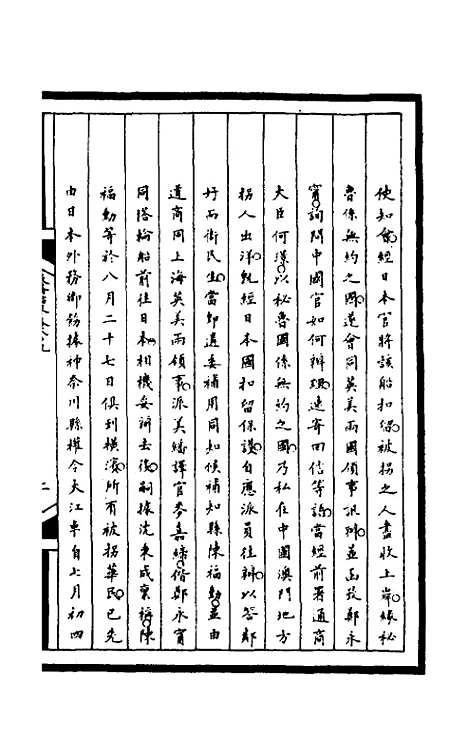 使知會經日本官將該船扣留被拐之人盡收上岸緣秘
魯係無約之國遂會同英美兩國領事訊辦並函致鄭永
甯詢問中國官如何辦理速寄回信等語當經前署通商
大臣何 以秘魯國係無約之國乃私在中國澳門地方
拐人出洋旣經日本國扣留保護自應派員往辦以答鄰
好而衛民生當卽遴委補用同知候補知縣陳福勳並由
道商同上海英美兩領事派美繙譯官麥嘉締偕鄭永甯
同搭輪船前往日本相機妥辦去後嗣據沈東成稟稱陳
福勳等於八月二十七日俱到橫濱所有被拐華民已先
由日本外務卿飭據神奈川縣權令大江卓自七月初四